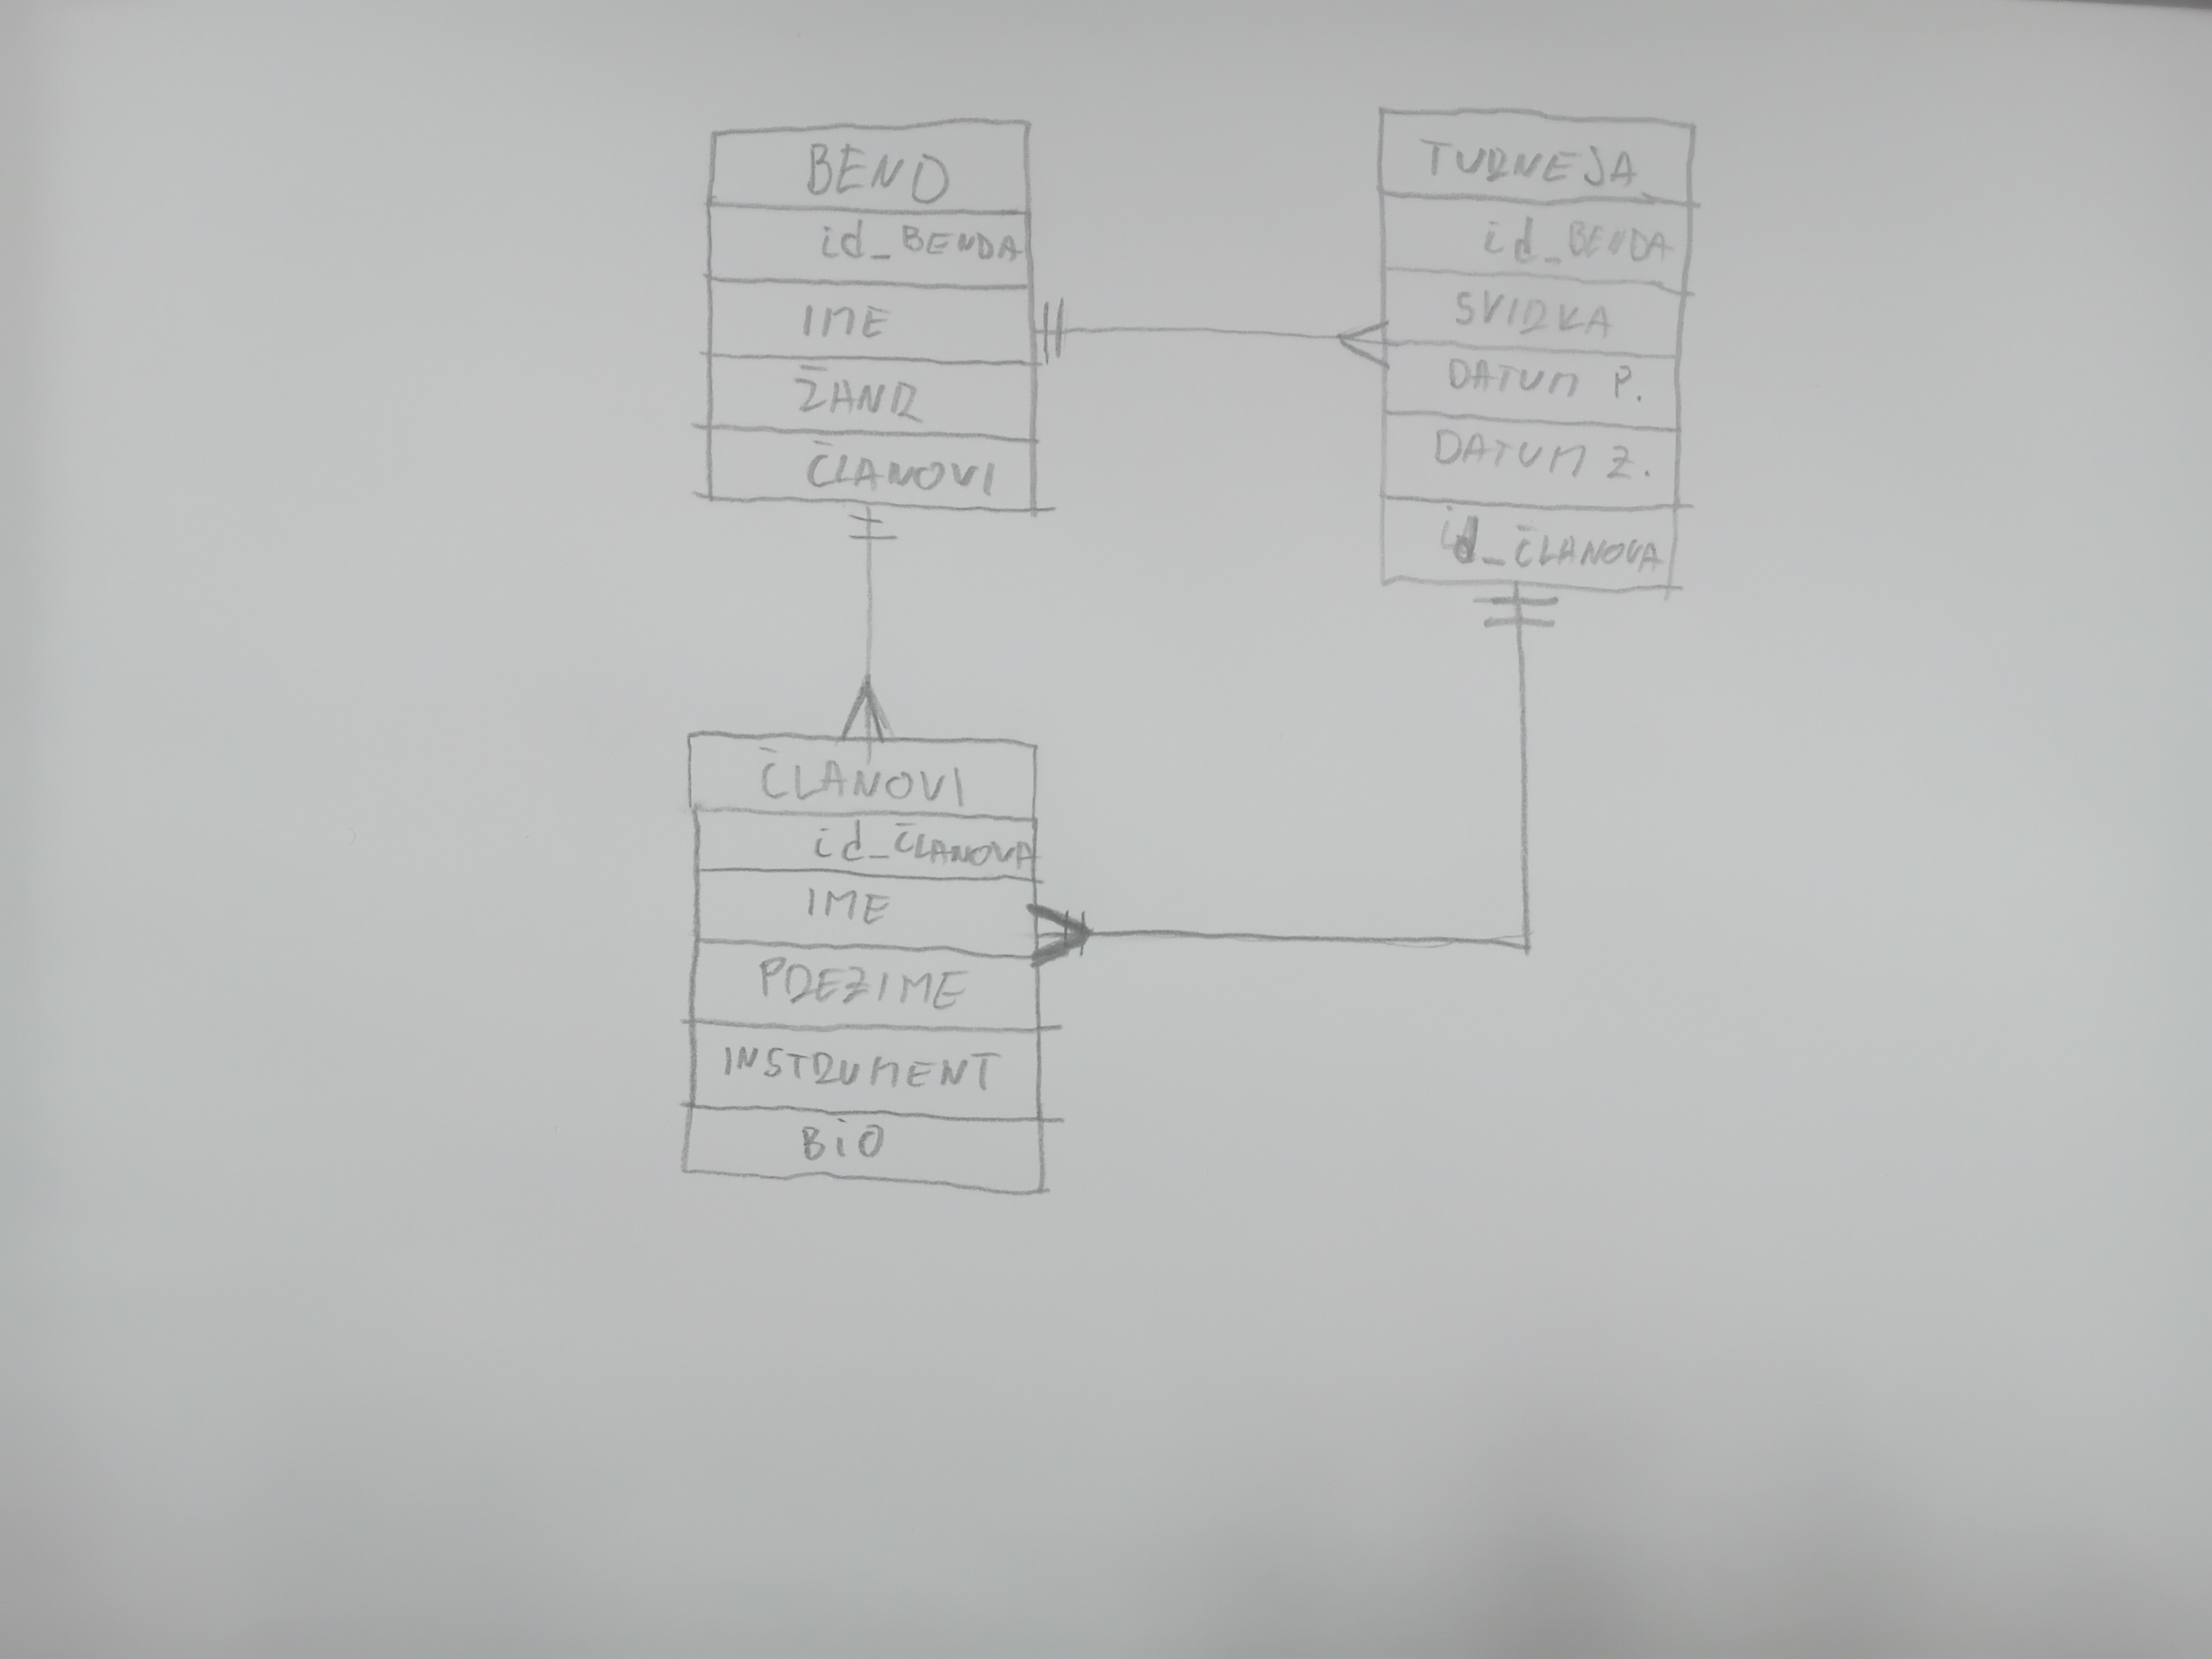 BEND
id_BENDA
IME
ŽANR
ČLANOVI
TURNEJA
id_BENDA
SVIRKA
DATUM P.
DATUM Z.
id_ČLANOVA
ČLANOVI
id_ČLANOVA
IME
PREZIME
INSTRUMENT
BiO